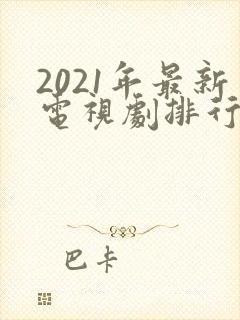 2021年最新
電視劇排行
巴卡